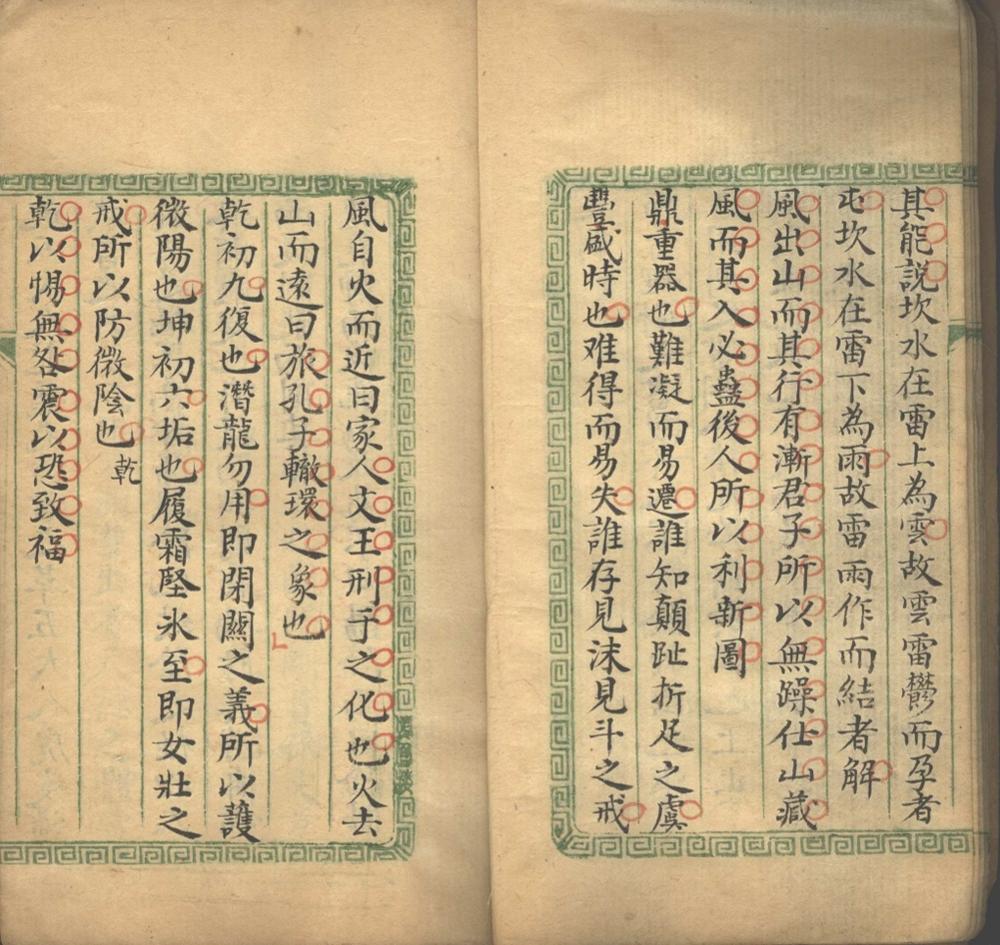 其能說坎水在雷上為雲故雲雷鬱而孕者
屯坎水在雷下為雨故雷雨作而結者解
風出山而其行有漸君子所以無躁仕山藏
風而其入必蠱後人所以利新圖
鼎重器也難凝而易遷誰知顛趾折足之虞
豐盛時也难得而易失誰存見沫見斗之戒
風自火而近曰家人文王刑于之化也火去
山而遠曰旅孔子轍環之象也
乾初九復也潛龍勿用即閉關之義所以護
微陽也坤初六垢也履霜堅氷至即女壯之
戒所以防微陰也乾
乾以惕無咎震以恐致福